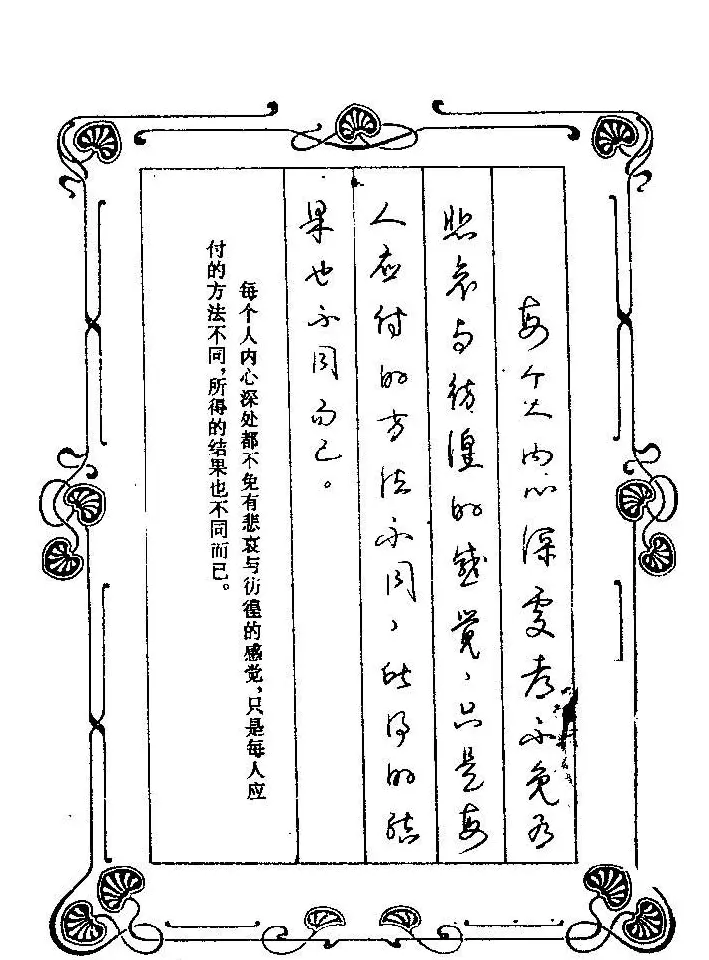 每个人内心深处都不免有
悲哀与彷徨的感觉，只是每
人应付的方法不同，所得的结
果也不同而已。
每个人内心深处都不免有悲哀与彷徨的感觉，只是每人应
付的方法不同，所得的结果也不同而已。